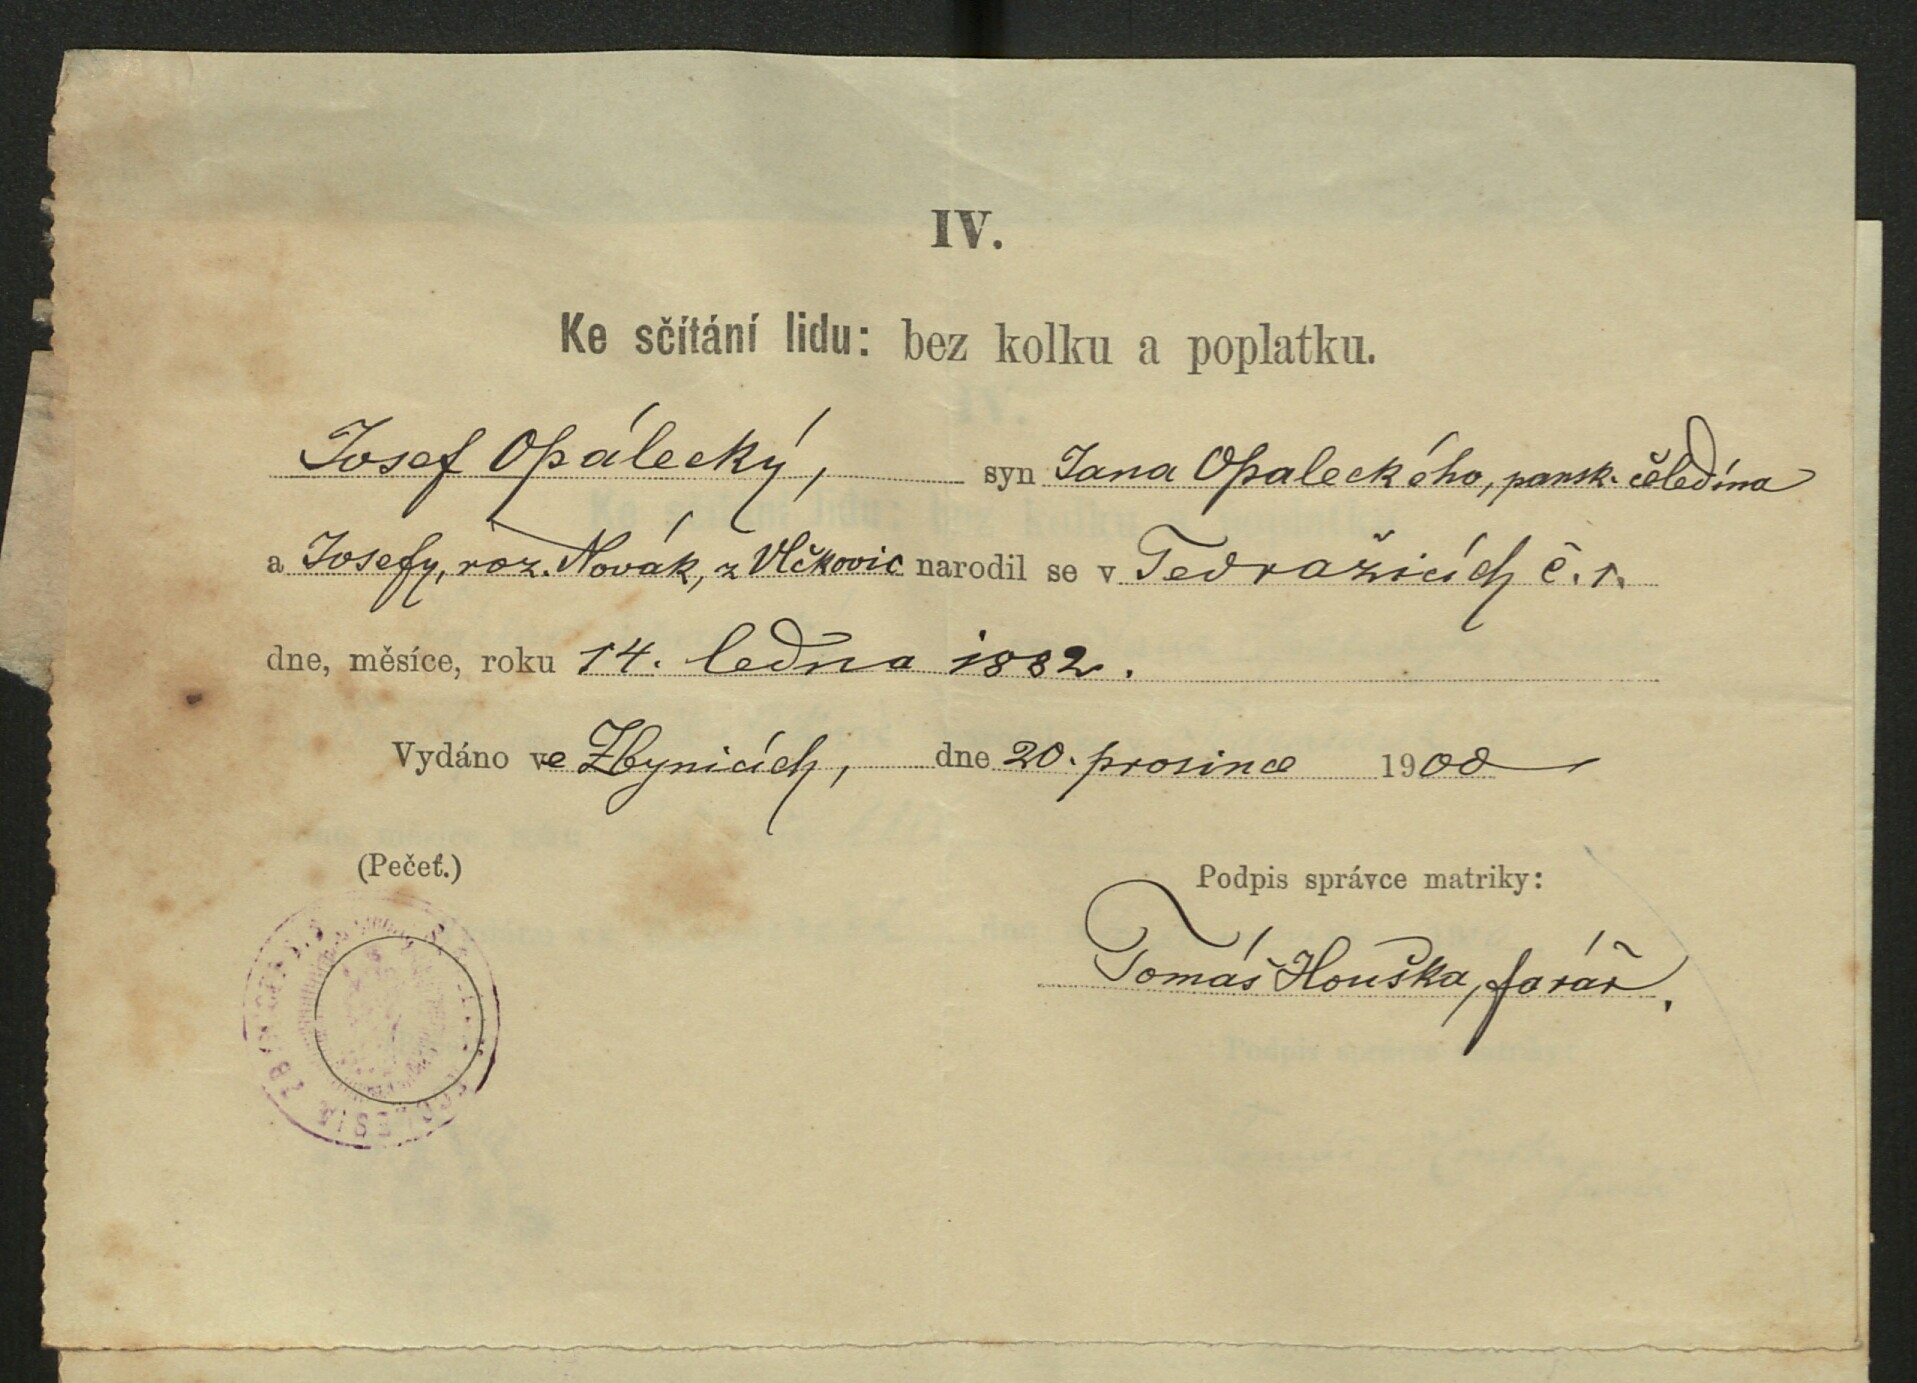 IV.
Ke sčítání lidu: bez kolku a poplatku.
Josef Opálecký, syn Jana Opaleckého, pansk. čeledína
a Josefy, roz. Novák, z Vlčkovic narodil se v Tedražicích č. 1.
dne, měsíce, roku 14. ledna 1882.
Vydáno ve Zbynicích, dne 20. prosince 1900
(Pečeť.)
Podpis správce matriky:
Tomáš Houška, farář.